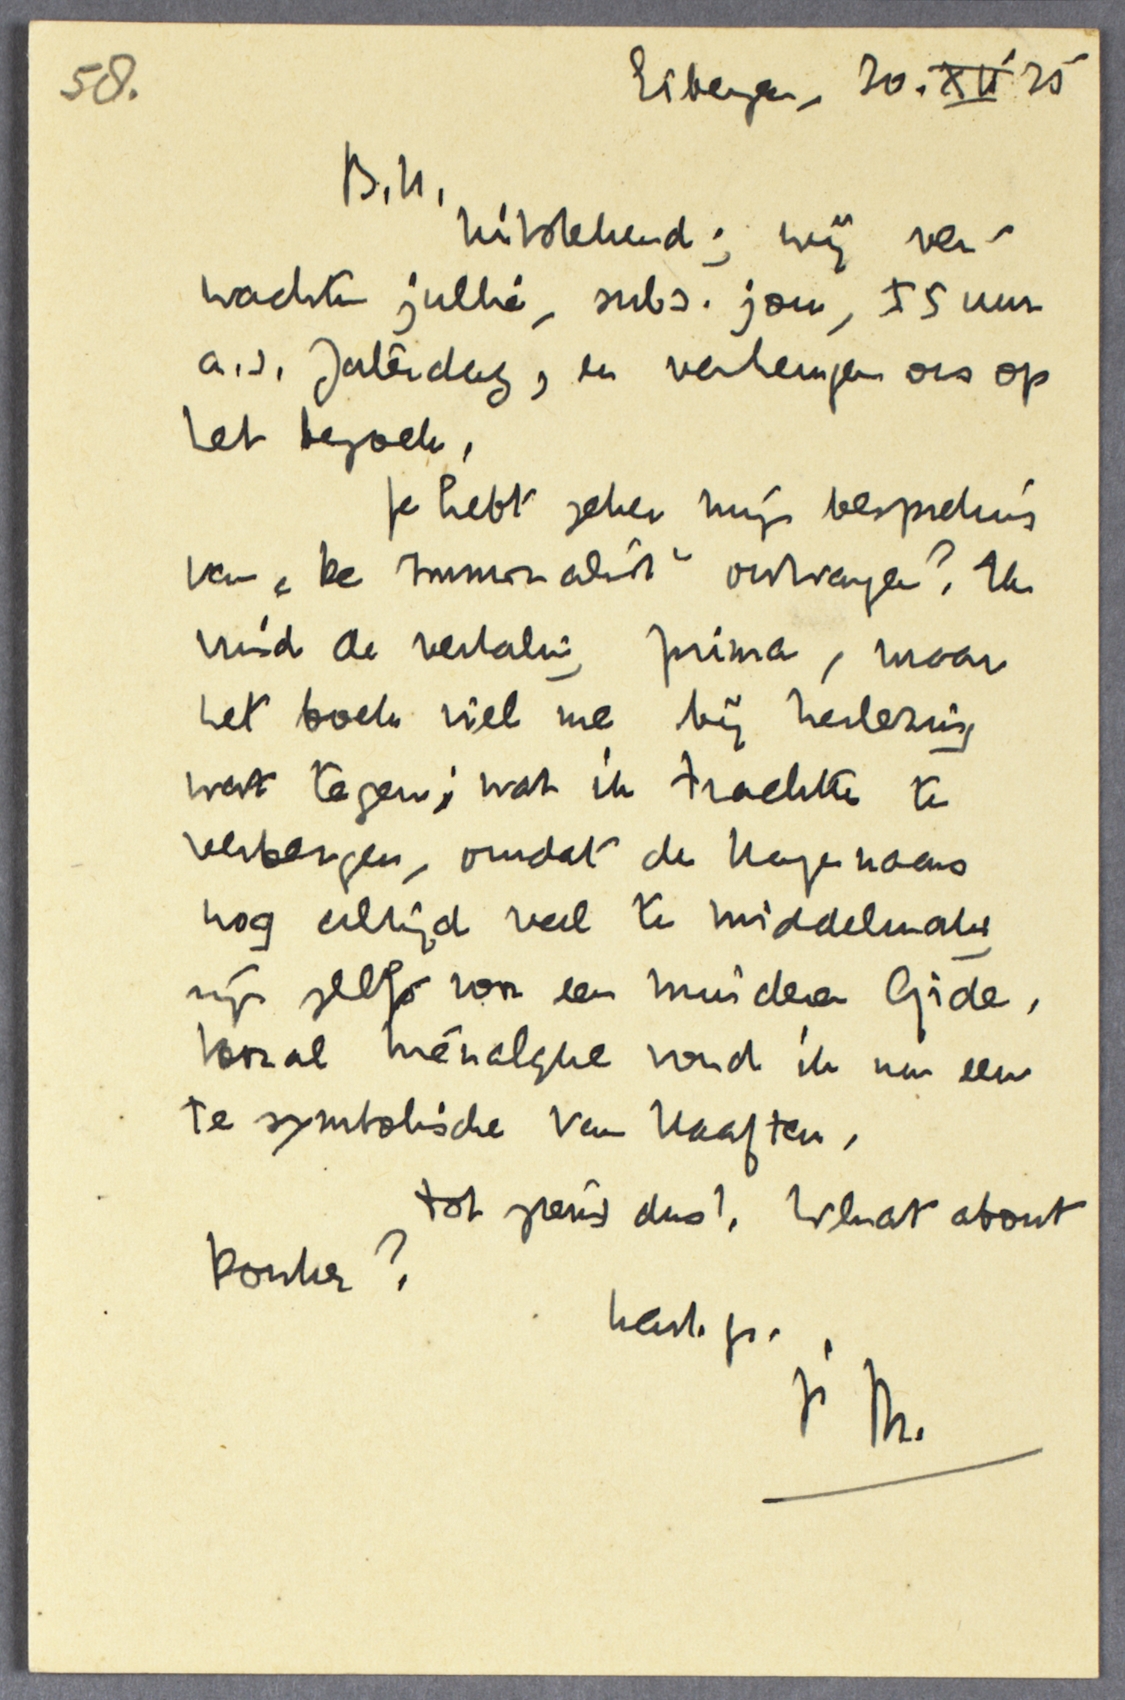 58.
Eibergen, 30.XII '35
B.H.,
Uitstekend; wij ver-
wachten jullie, subs. jou, ± 5 uur
a.s. Zaterdag, en verheugen ons op
het bezoek.
Je hebt zeker mijn bespreking
van „De Immoralist" ontvangen? Ik
vind de vertaling prima, maar
het boek viel me bij herlezing
wat tegen; wat ik trachtte te
verbergen, omdat de Hagenaars
nog altijd veel te middelmatig
zijn zelfs voor een mindere Gide.
Vooral Ménalque vond ik nu een
te symbolische Van Haaften.
Tot ziens dus! What about
Donker?
hart. gr.
je M.